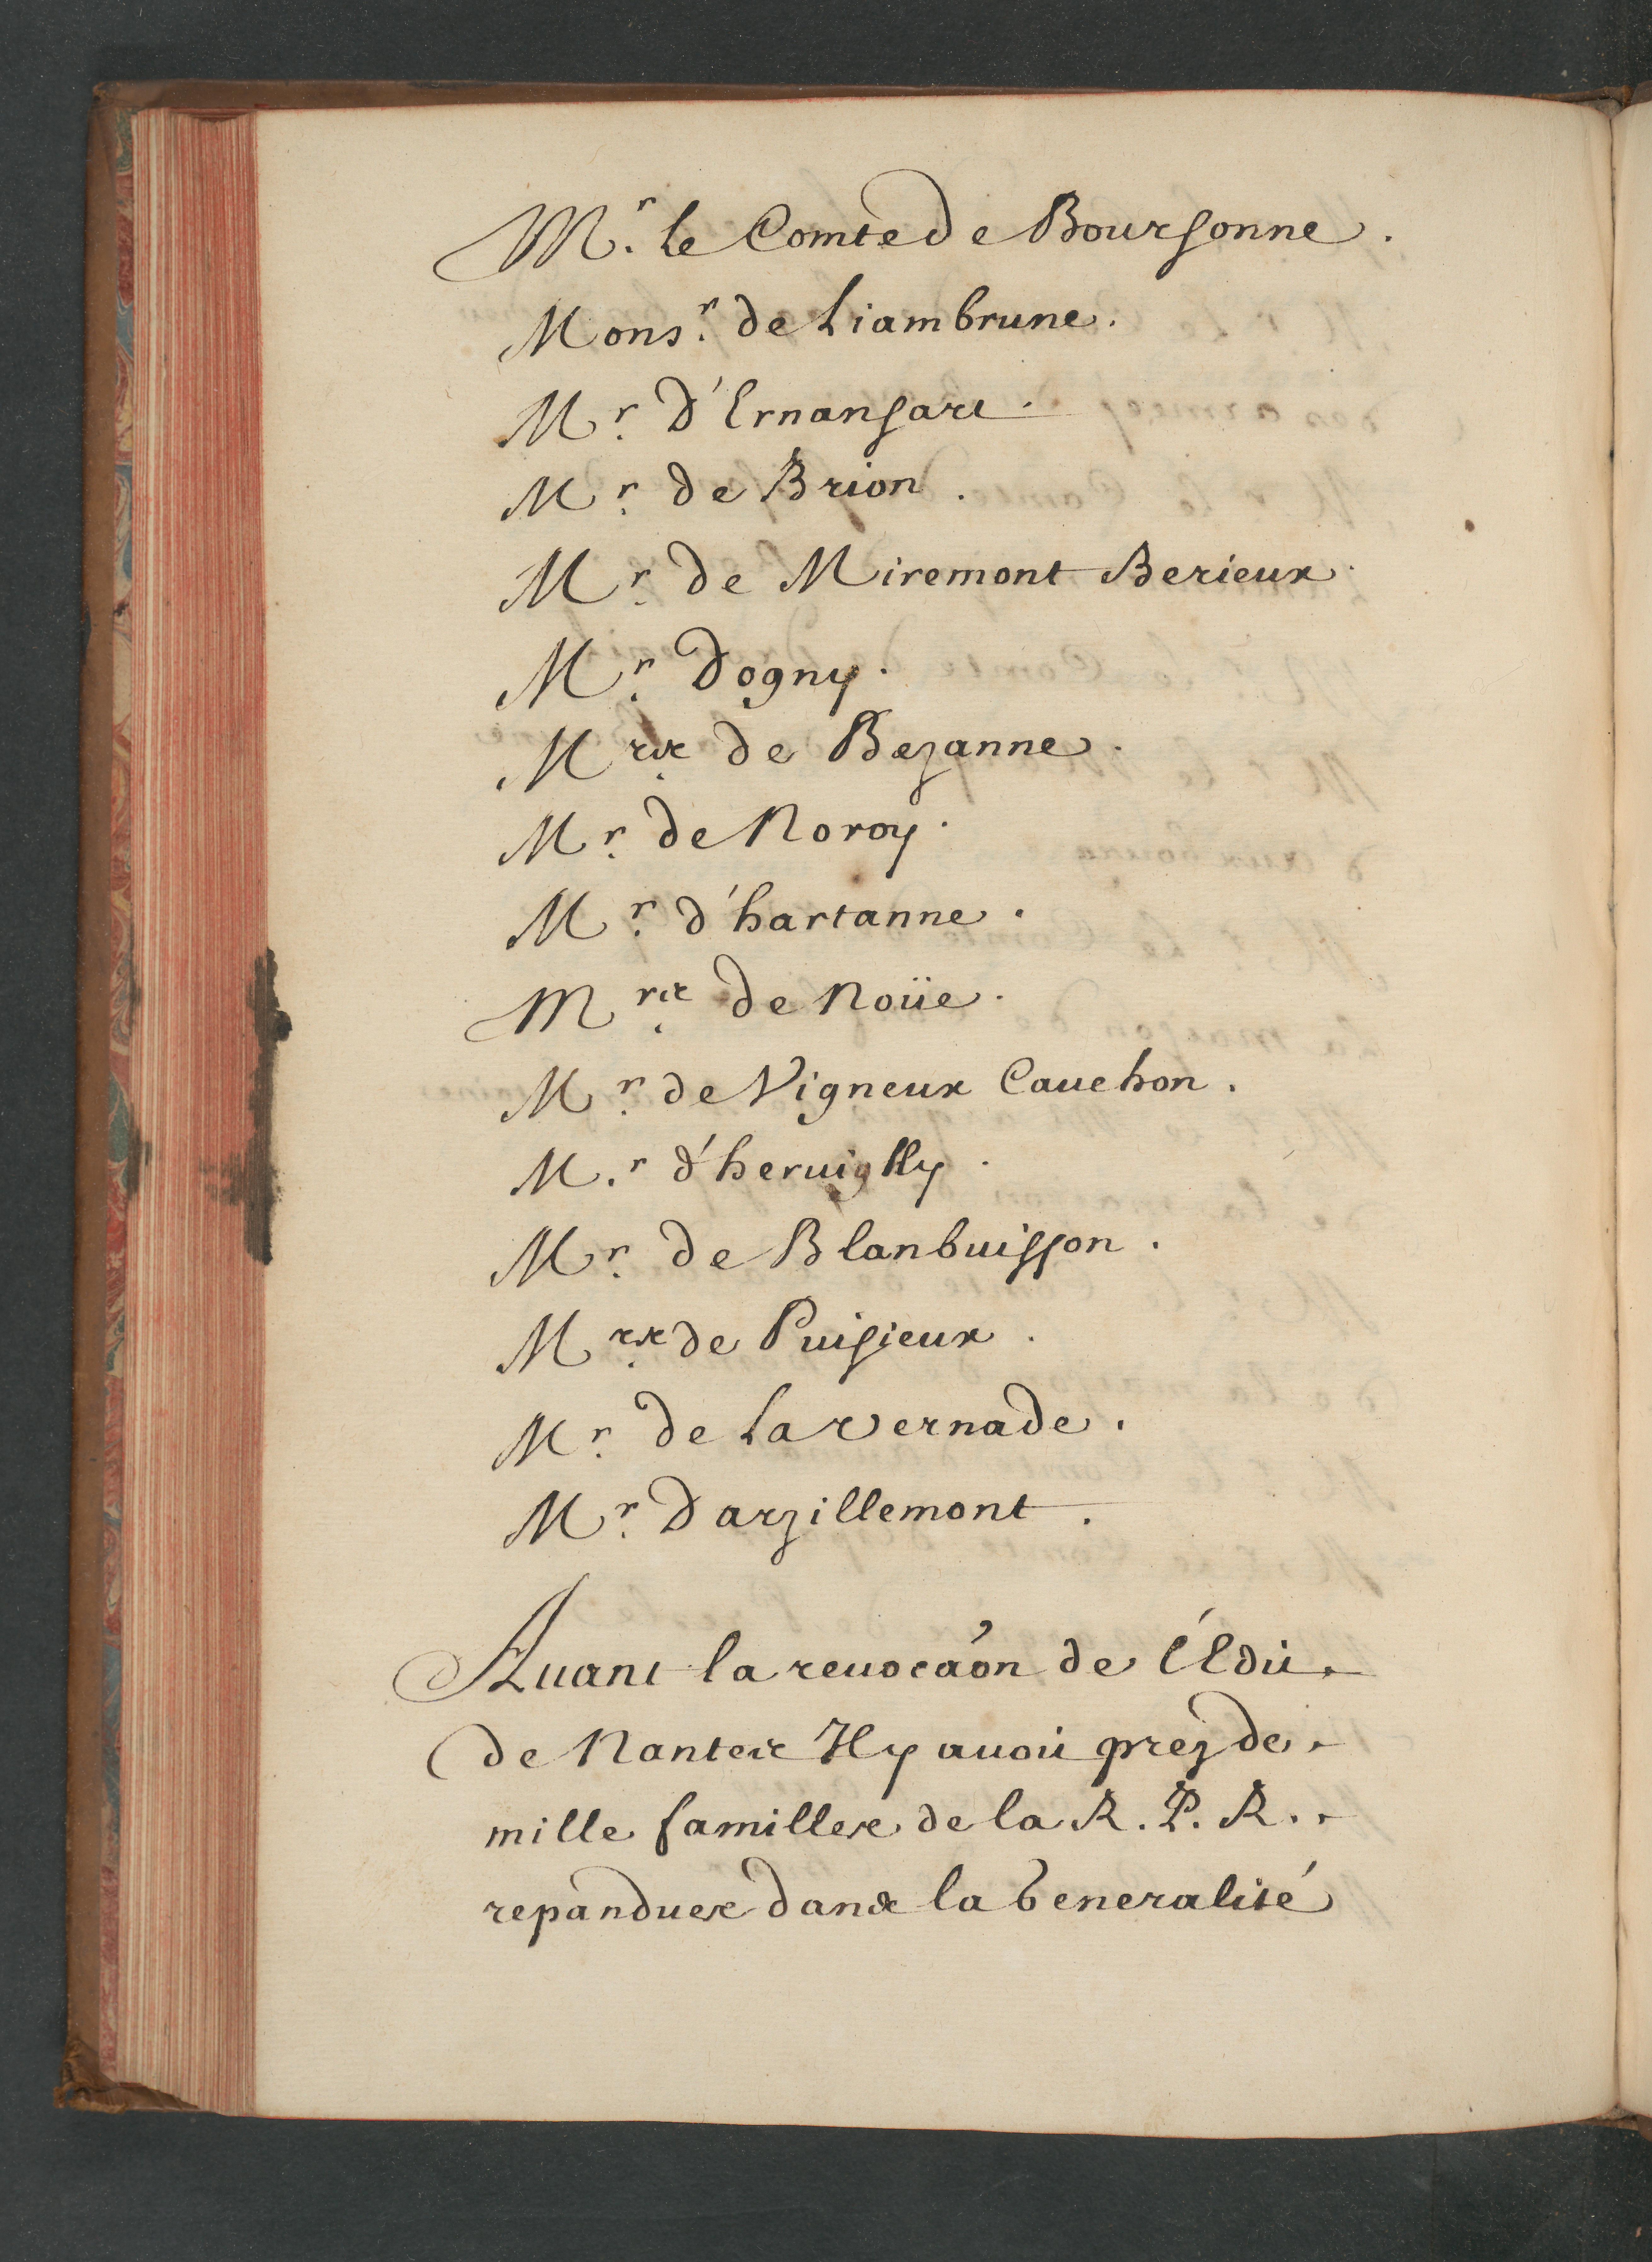 Mr. le Comte de Boursonne.
Monsr. de Liambrune.
Mr. D'Ernansart.
Mr. de Brion.
Mr. de Miremont Berieux.
Mr. Dogny.
Mrs. de Bezanne.
Mr. de Noroy.
Mr. d'hartanne.
Mrs. de Noüe.
Mr. de Vigneux Cauchon.
Mr. d'heruiglly.
Mr. de Blanbuisson.
Mrs. de Puisieux.
Mr. de La vernade.
Mr. Darzillemont.
Auant la reuocãon de l'Edit
de Nantes Il y auoit prez de
mille familles de la R. P. R.
repandues dans la Generalité